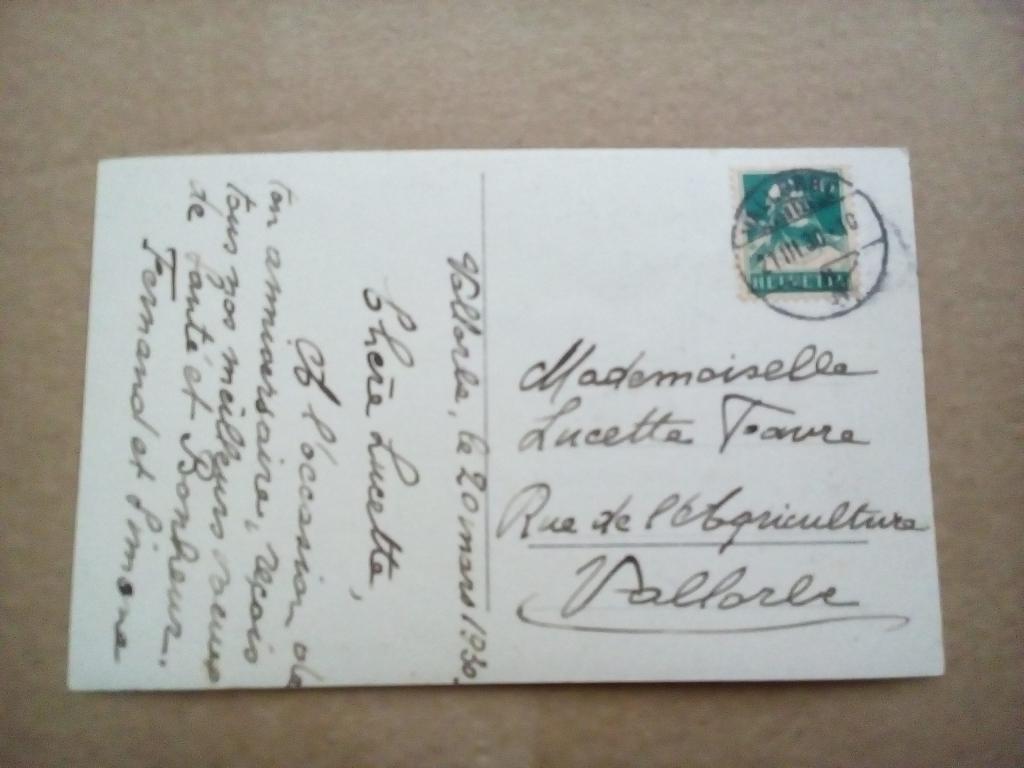 Vallorbe, le 20 mars 1930.
Chère Lucette,
A l'occasion de
ton anniversaire, reçois
tous nos meilleurs voeux
de santé et Bonheur.
Fernand et Simone
HELVETIA
Mademoiselle
Lucette Favre
Rue de l'Agriculture
Vallorbe